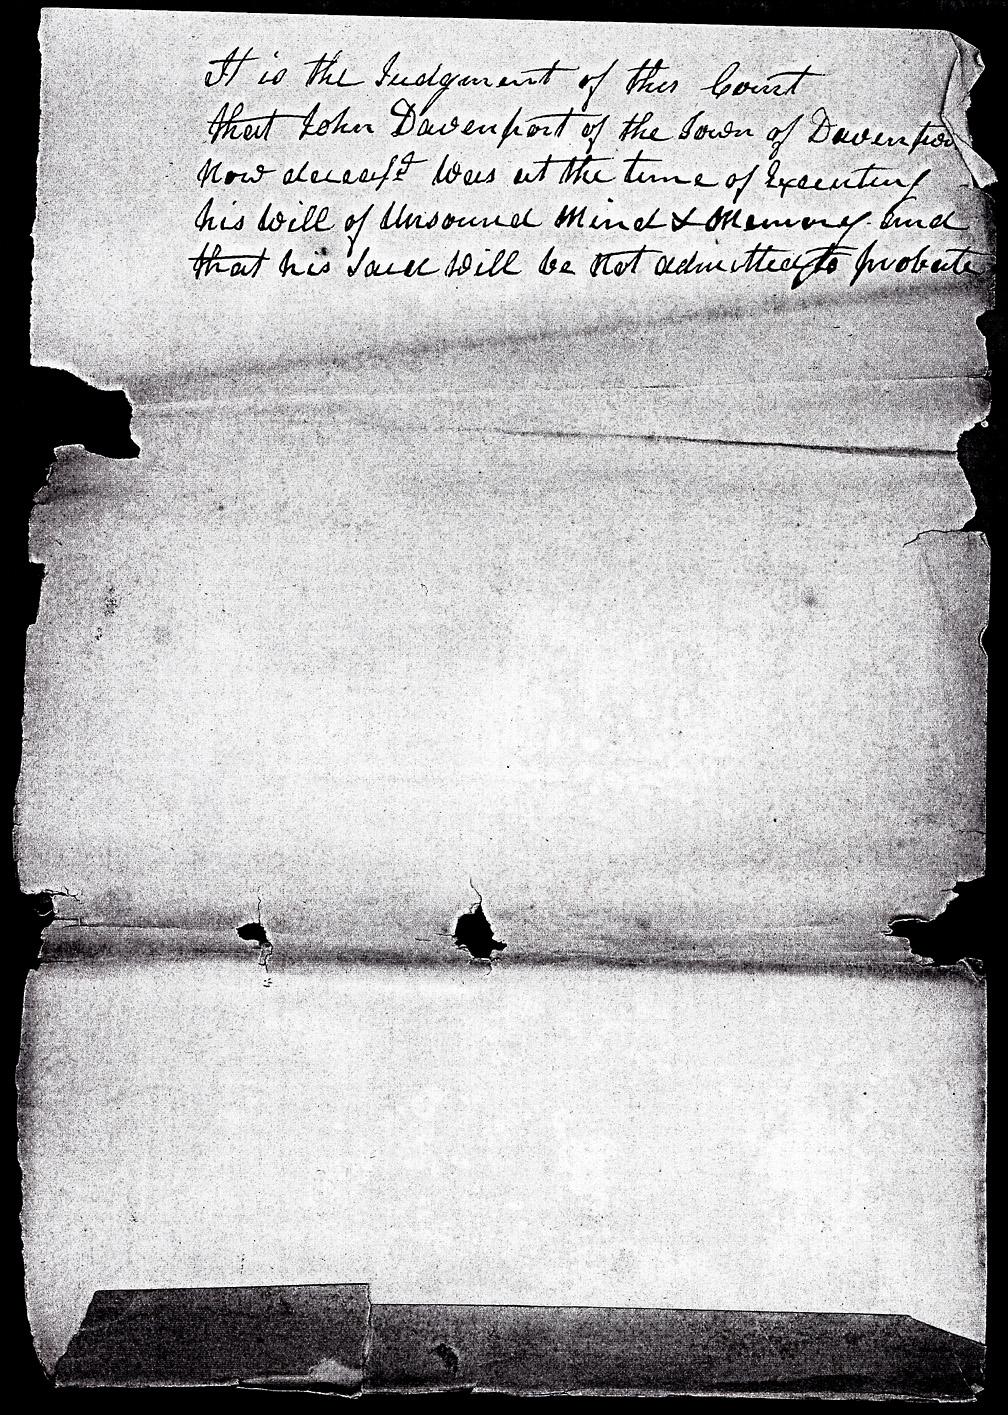 It is the Judgment of this Court
that John Davenport of the Town of Davenpor
Now deceasd was at the time of Executing
his Will of Unsound Mind & Memory and
that his Said Will be Not admitted to probate